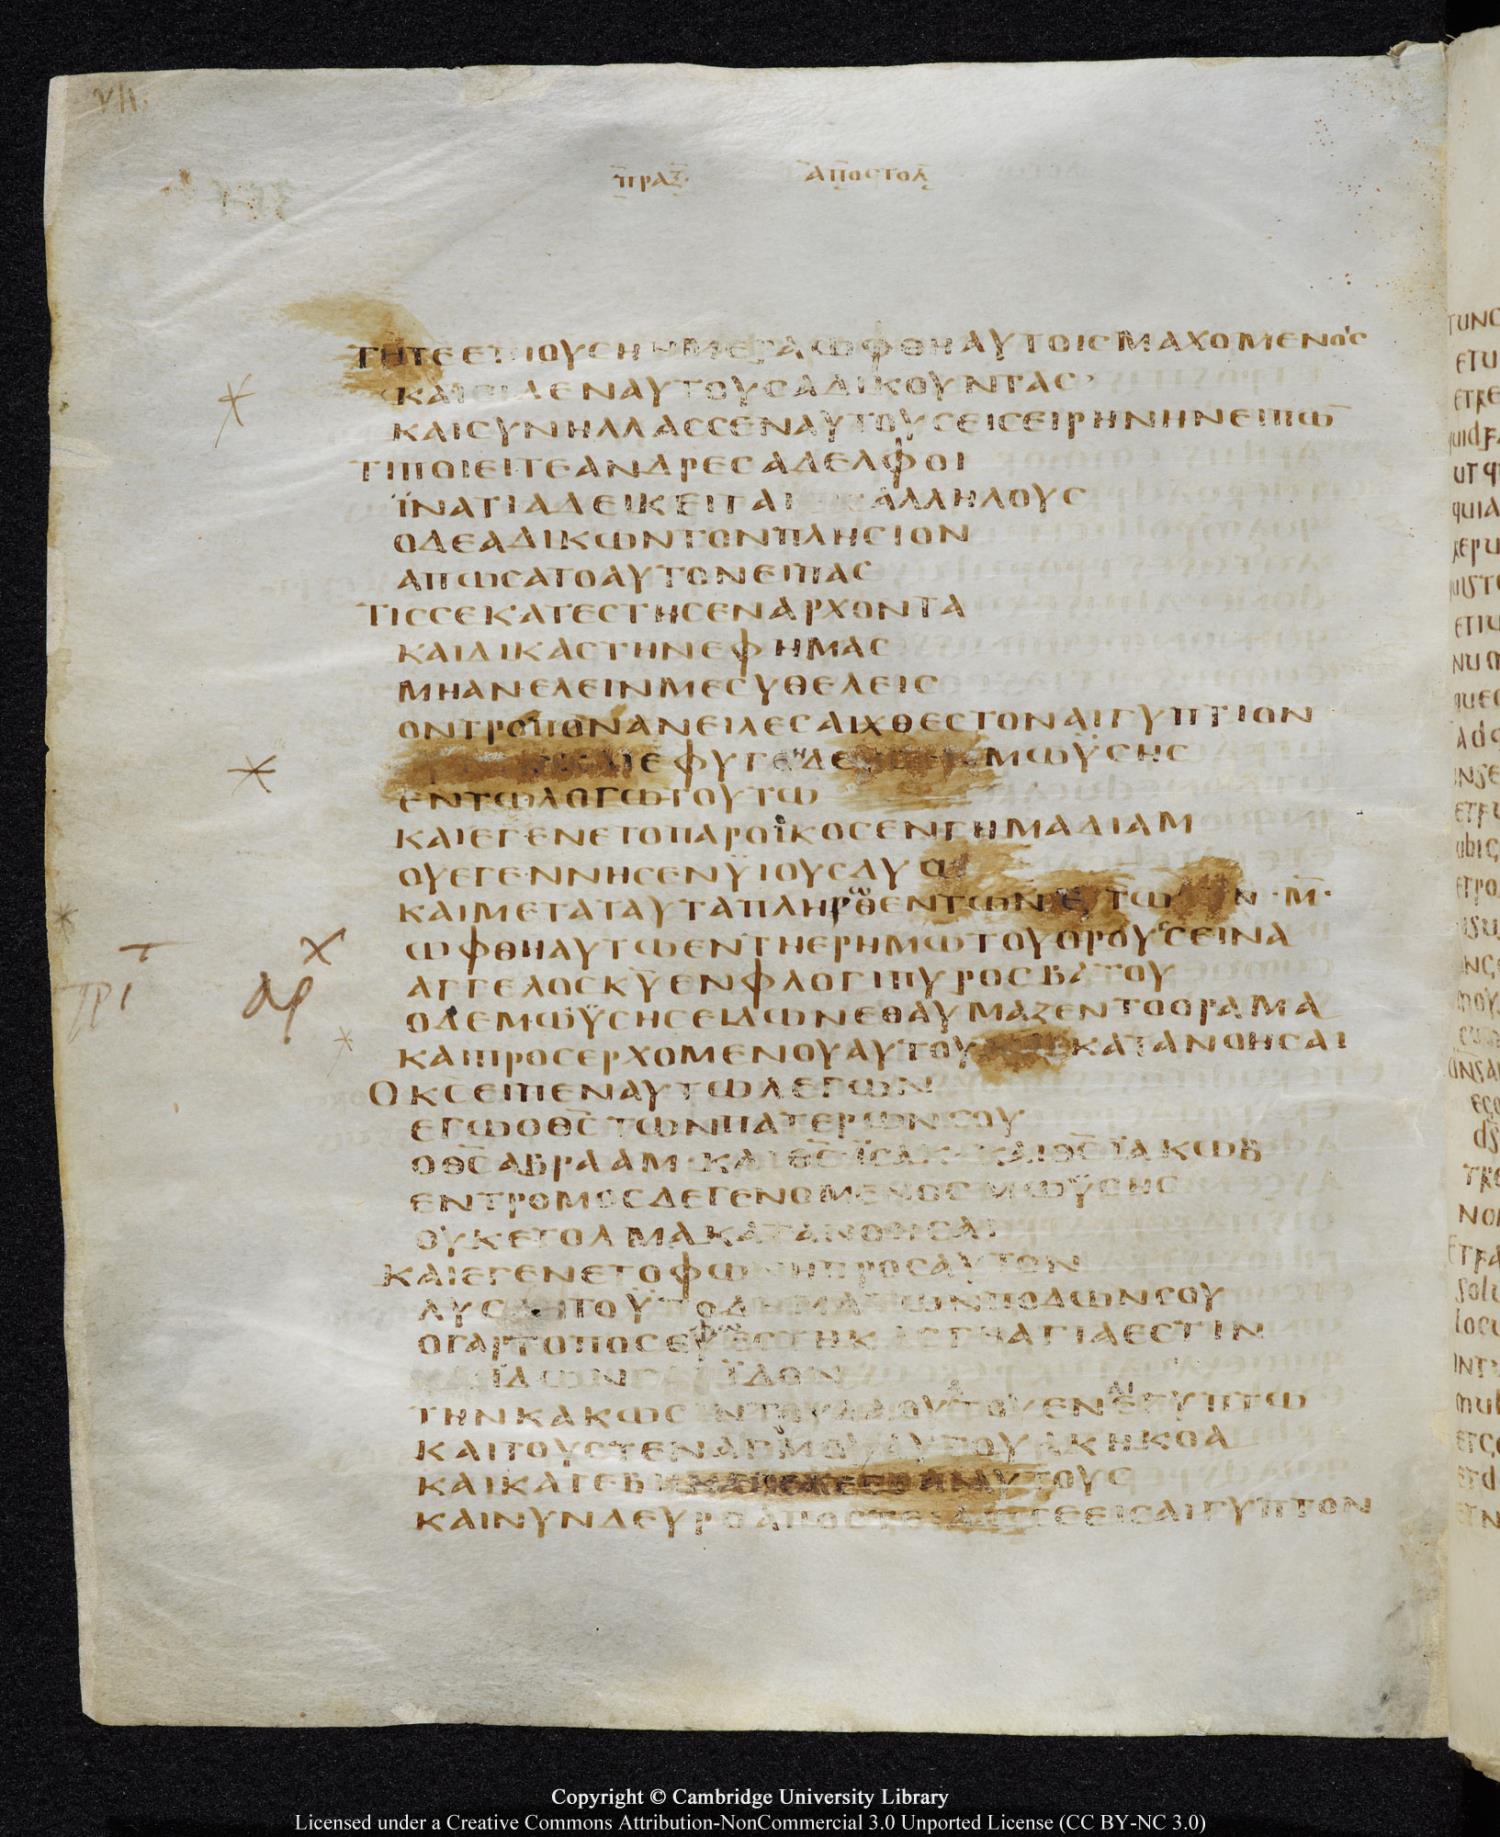 VII.
ΠΡΑΞ· ΑΠΟCΤΟΛ
ΤΗΤΕΕΠΙΟΥCΗΗΜΕΡΑΩΦΘΗΑΥΤΟΙCΜΑΧΟΜΕΝΟΙC
ΚΑΙΕΙΔΕΝΑΥΤΟΥCΑΔΙΚΟΥΝΤΑC
ΚΑΙCΥΝΗΛΛΑCCΕΝΑΥΤΟΥCΕΙCΕΙΡΗΝΗΝΕΙΠΩ̅
ΤΙΠΟΙΕΙΤΕΑΝΔΡΕCΑΔΕΛΦΟΙ
ΪΝΑΤΙΑΔΕΙΚΕΙΤΑΙ ΑΛΛΗΛΟΥC
ΟΔΕΑΔΙΚΩΝΤΟΝΠΛΗCΙΟΝ
ΑΠΩCΑΤΟΑΥΤΟΝΕΙΠΑC
ΤΙCCΕΚΑΤΕCΤΗCΕΝΑΡΧΟΝΤΑ
ΚΑΙΔΙΚΑCΤΗΝΕΦΗΜΑC
ΜΗΑΝΕΛΕΙΝΜΕCΥΘΕΛΕΙC
ΟΝΤΡΟΠΟΝΑΝΕΙΛΕCΑΙΧΘΕCΤΟΝΑΙΓΥΠΤΙΟΝ
ΕΦΥΓΕΝΔΕ ΜΩΫCΗC
ΕΝΤΩΛΟΓΩΤΟΥΤΩ
ΚΑΙΕΓΕΝΕΤΟΠΑΡΟΪΚΟCΕΝΓΗΜΑΔΙΑΜ
ΟΥΕΓΕΝΝΗCΕΝΫΙΟΥCΔΥΟ
ΚΑΙΜΕΤΑΤΑΥΤΑΠΛΗΡΩΘΕΝΤΩΝ ΕΤΩΝ ·Μ̅·
ΩΦΘΗΑΥΤΩΕΝΤΗΕΡΗΜΩΤΟΥΟΡΟΥCCΕΙΝΑ
ΑΓΓΕΛΟCΚ̅Υ̅ΕΝΦΛΟΓΙΠΥΡΟCΒΑΤΟΥ
ΟΔΕΜΩΫCΗCΕΙΔΩΝΕΘΑΥΜΑΖΕΝΤΟΟΡΑΜΑ
ΚΑΙΠΡΟCΕΡΧΟΜΕΝΟΥΑΥΤΟΥ ΚΑΤΑΝΟΗCΑΙ
ΟΚ̅C̅ΕΙΠΕΝΑΥΤΩΛΕΓΩΝ
ΕΓΩΟΘ̅C̅ΤΩΝΠΑΤΕΡΩΝCΟΥ
ΟΘ̅C̅ΑΒΡΑΑΜ·ΚΑΙΘ̅C̅ΪCΑΚ·ΚΑΙΘ̅C̅ΪΑΚΩΒ
ΕΝΤΡΟΜΟCΔΕΓΕΝΟΜΕΝΟCΜΩΫCΗC
ΟΥΚΕΤΟΛΜΑΚΑΤΑΝΟΗCΑΙ
ΚΑΙΕΓΕΝΕΤΟΦΩΝΗΠΡΟCΑΥΤΟΝ
ΛΥCΟΝΤΟΫΠΟΔΗΜΑΤΩΝΠΟΔΩΝCΟΥ
ΟΓΑΡΤΟΠΟC ΕCΤΗΚΑCΓΗΑΓΙΑΕCΤΙΝ
ΚΑΙΪΔΩΝΓΑΡΪΔΟΝ
ΤΗΝΚΑΚΩCΙΝΤΟΥΛΑΟΥΤΟΥΕΝΑΙΓΥΠΤΩ
ΚΑΙΤΟΥCΤΕΝΑΓΜΟΥΑΥΤΟΥΑΚΗΚΟΑ
ΚΑΙΚΑΤΕΒΗΝ ΑΥΤΟΥC
ΚΑΙΝΥΝΔΕΥΡΟΑΠΟCΤΕΙΛΩCΕΕΙCΑΙΓΥΠΤΟΝ
Copyright © Cambridge University Library
Licensed under a Creative Commons Attribution-NonCommercial 3.0 Unported License (CC BY-NC 3.0)